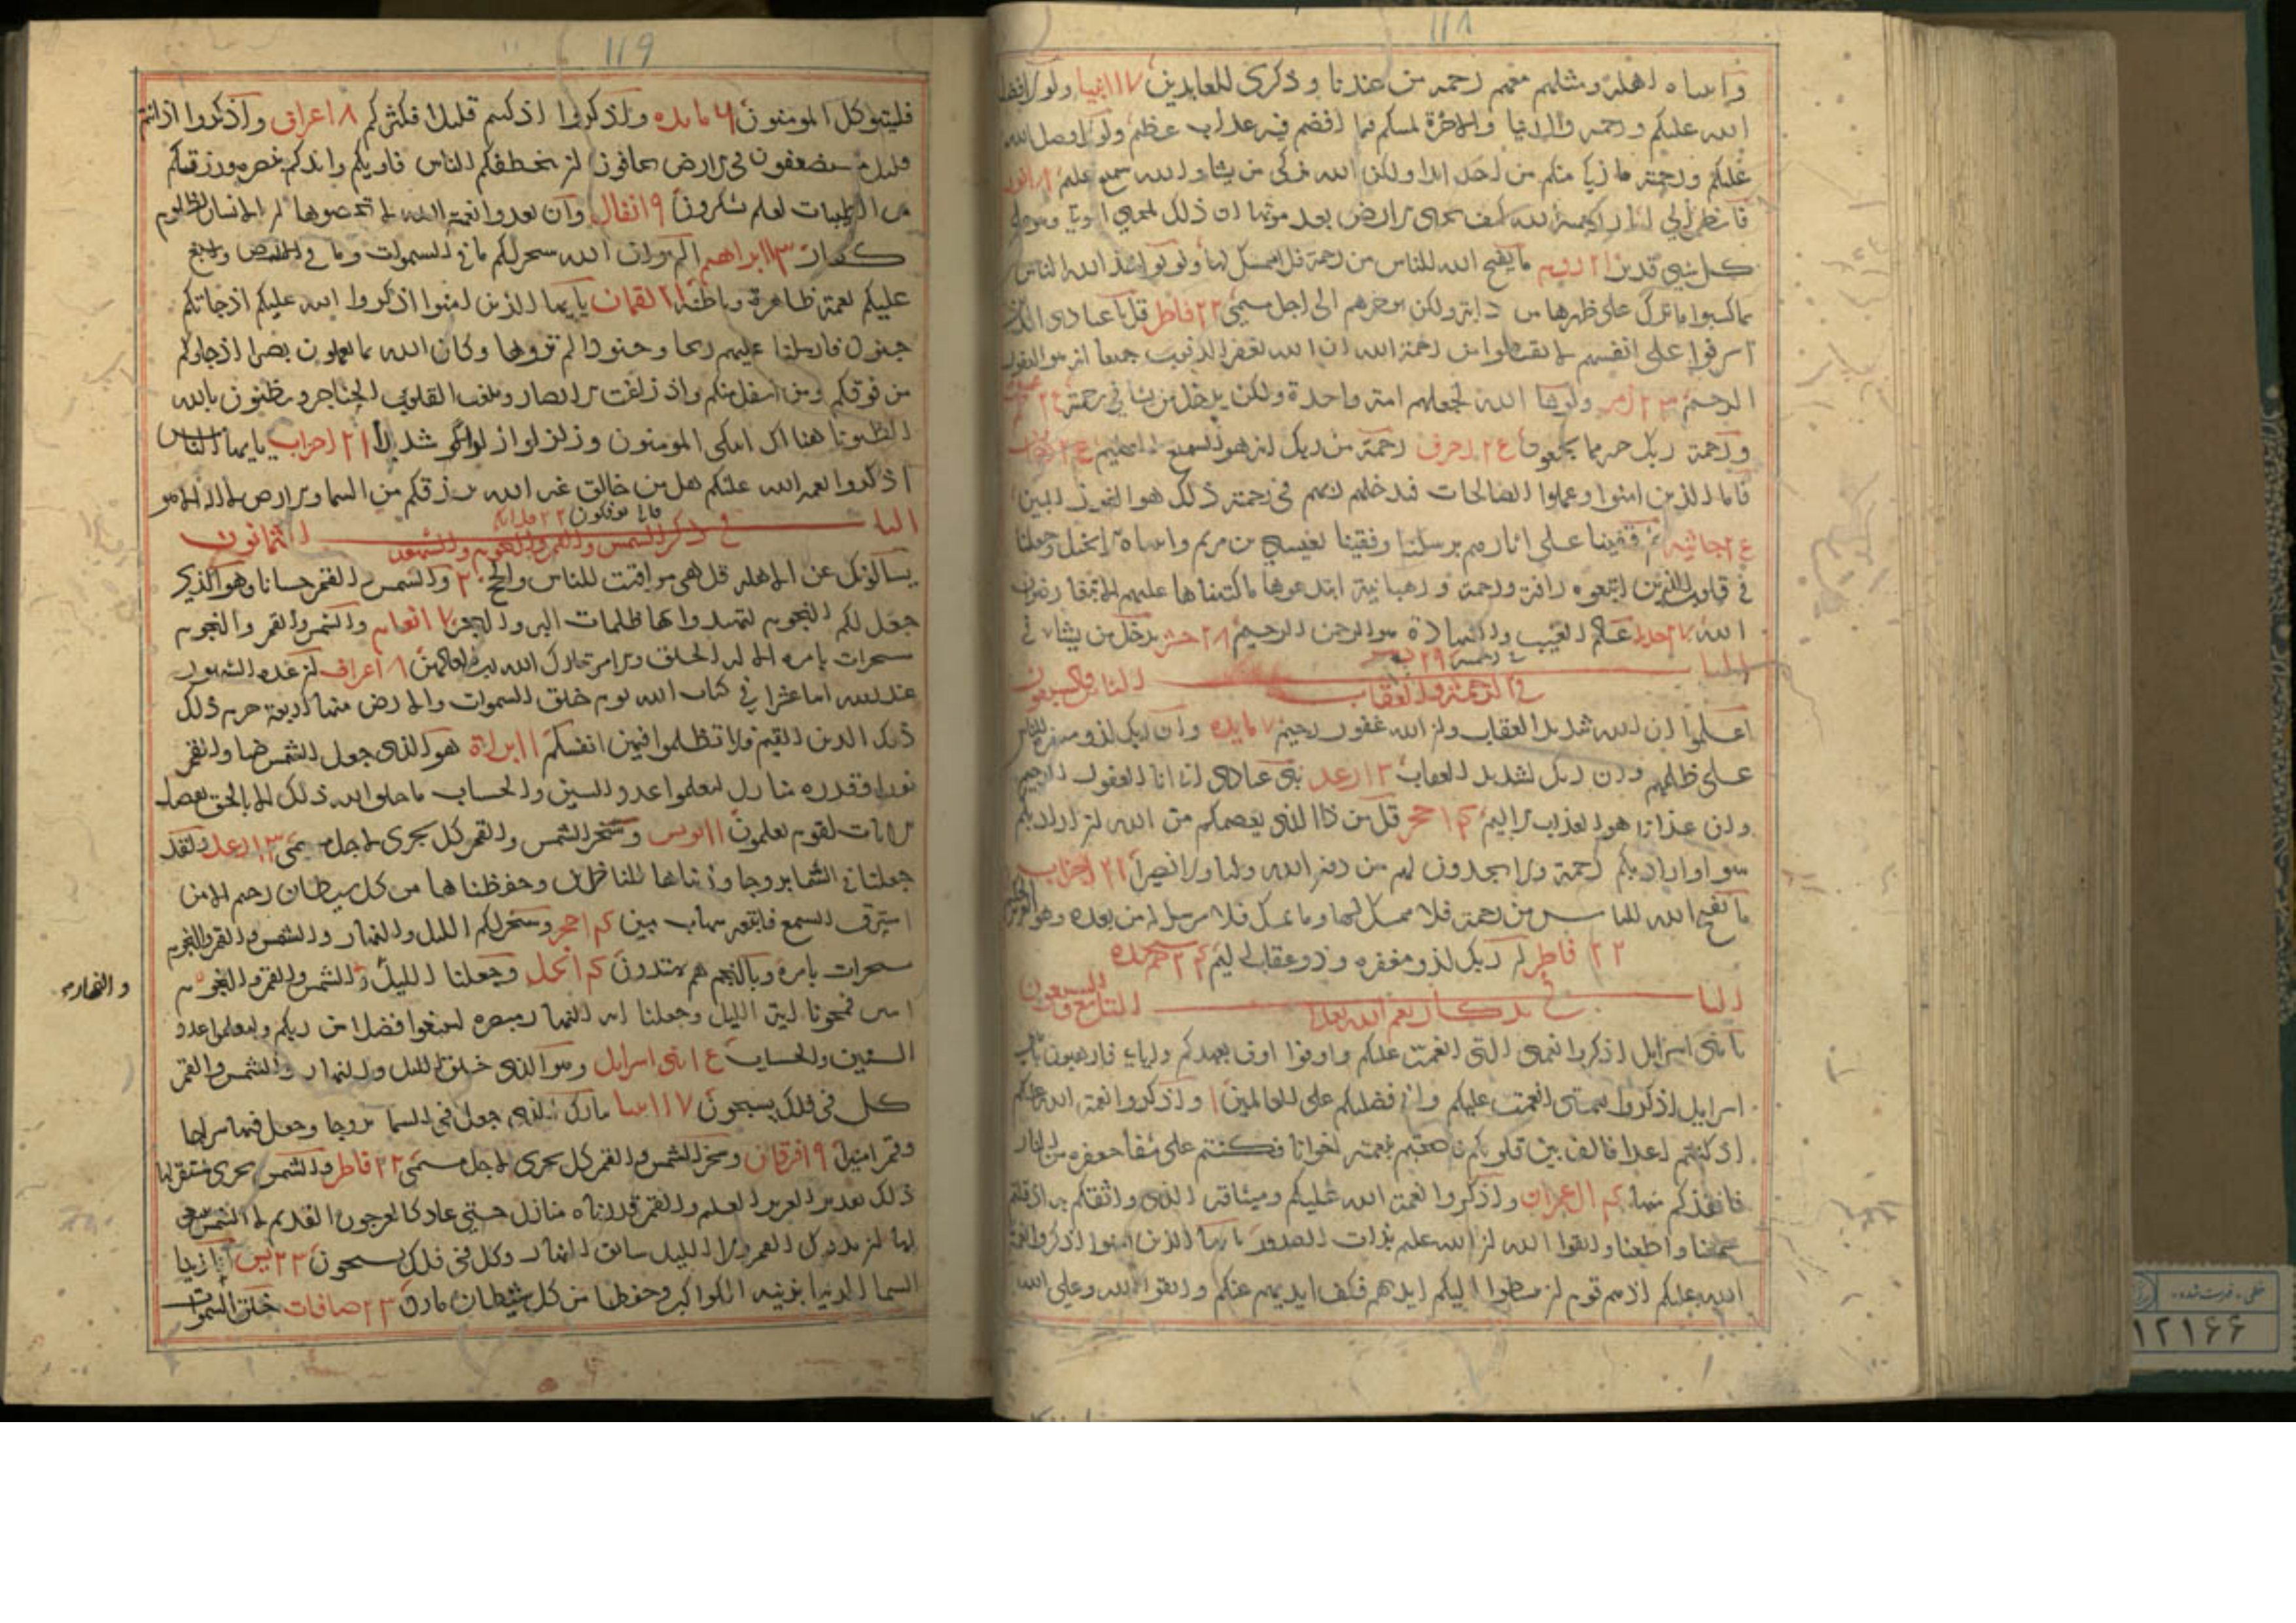 ١١٨
واتيناه اهله ومثلهم معهم رحمه من عندنا وذكرى للعابدين ١٧ انبيا ولولا فضل
الله عليكم ورحمته في الدنيا والاخرة لمسكم فيما افضتم فيه عذاب عظيم ولولا فضل الله
عليكم ورحمته ما زكى منكم من احد ابدا ولكن الله يزكى من يشاء والله سميع عليم ١٨ نور
فانظر الى اثار رحمة الله كيف يحيى الارض بعد موتها ان ذلك لمحيي الموتى وهو على
كل شي قدير ٢١ روم ما يفتح الله للناس من رحمة فلا ممسك لها ولو يواخذ الله الناس
بما كسبوا ما ترك على ظهرها من دابة ولكن يوخرهم الى اجل مسمى ٢٢ فاطر قل يا عبادى الذين
اسرفوا على انفسهم لا تقنطوا من رحمة الله ان الله يغفر الذنوب جميعا انه هو الغفور
الرحيم ٢٣ زمر ولو شا الله لجعلهم امة واحدة ولكن يدخل من يشا في رحمته
ورحمة ربك خير مما يجمعون ٢٤ زخرف رحمة من ربك انه هو السميع العليم
فاما الذين امنوا وعملوا الصالحات فيدخلهم ربهم في رحمته ذلك هو الفوز المبين
٢٤ جاثيه ثم قفينا على اثارهم برسلنا وقفينا بعيسى بن مريم واتيناه الانجيل وجعلنا
في قلوب الذين اتبعوه رافة ورحمة ورهبانية ابتدعوها ما كتبناها عليهم الا ابتغا رضوان
الله ٢٧ حديد عالم الغيب والشهادة هو الرحمن الرحيم ٢٨ حشر يدخل من يشاء في
رحمته ٢٩
البا ب الثامن والسبعون
في الرحمة والعقاب
اعلموا ان الله شديد العقاب وان الله غفور رحيم ٧ مايده وان ربك لذو مغفرة للناس
على ظلمهم وان ربك لشديد العقاب ١٣ رعد نبى عبادى انى انا الغفور الرحيم
وان عذابى هو العذاب الاليم ١٤ حجر قل من ذا الذى يعصمكم من الله ان اراد بكم
سوا او اراد بكم رحمة ولا يجدون لهم من دون الله وليا ولا نصيرا ٢١ احزاب
ما يفتح الله للناس من رحمة فلا ممسك لها وما يمسك فلا مرسل له من بعده وهو العزيز الحكيم
٢٢ فاطر ان ربك لذو مغفره وذو عقاب اليم ٢٤ حم سجده
البا ب التاسع والسبعون
في تذكار نعم الله تعالى
يا بنى اسرايل اذكروا نعمتى التى انعمت عليكم واوفوا بعهدى اوف بعهدكم واياي فارهبون يا بنى
اسرايل اذكروا نعمتى التى انعمت عليكم وانى فضلتكم على العالمين ١ واذكروا نعمة الله عليكم
اذ كنتم اعدا فالف بين قلوبكم فاصبحتم بنعمته اخوانا وكنتم على شفا حفره من النار
فانقذكم منها ٤ ال عمران واذكروا نعمة الله عليكم وميثاقه الذى واثقكم به اذ قلتم
سمعنا واطعنا واتقوا الله ان الله عليم بذات الصدور يا ايها الذين امنوا اذكروا نعمة
الله عليكم اذ هم قوم ان يبسطوا اليكم ايديهم فكف ايديهم عنكم واتقوا الله وعلى الله
خطى - فهرست شده
١٢١٦٦
١١٩
فليتوكل المومنون ٦ مايده واذكروا اذ كنتم قليلا فكثركم ٨ اعراف واذكروا اذ انتم
قليل مستضعفون في الارض تخافون ان يتخطفكم الناس فاويكم وايدكم بنصره ورزقكم
من الطيبات لعلكم تشكرون ٩ انفال وان تعدوا نعمة الله لا تحصوها ان الانسان لظلوم
كفار ١٣ ابراهيم الم تروا ان الله سخر لكم ما في السموات وما في الارض واسبغ
عليكم نعمة ظاهرة وباطنة ٢١ لقمان يا ايها الذين امنوا اذكروا نعمة الله عليكم اذ جاتكم
جنود فارسلنا عليهم ريحا وجنودا لم تروها وكان الله بما تعملون بصيرا اذ جاوكم
من فوقكم ومن اسفل منكم واذ زاغت الابصار وبلغت القلوب الحناجر وتظنون بالله
الظنونا هنالك ابتلى المومنون وزلزلوا زلزالا شديدا ٢١ احزاب يا ايها الناس
اذكروا نعمة الله عليكم هل من خالق غير الله يرزقكم من السما والارض لا اله الا هو
فانى توفكون ٢٢ ملايكه
البا ب الثمانون
في ذكر الشمس والقمر والنجوم والشهور
يسالونك عن الاهلة قل هى مواقيت للناس والحج ٢ والشمس والقمر حسبانا وهو الذى
جعل لكم النجوم لتهتدوا بها ظلمات البر والبحر ٧ انعام والشمس والقمر والنجوم
مسخرات بامره الا له الخلق والامر تبارك الله رب العالمين ٨ اعراف ان عدة الشهور
عند الله اثنا عشرا في كتاب الله يوم خلق السموات والارض منها اربعة حرم ذلك
ذلك الدين القيم فلا تظلموا فيهن انفسكم ١٠ براة هو الذى جعل الشمس ضيا والقمر
نورا وقدره منازل لتعلموا عدد السنين والحساب ما خلق الله ذلك الا بالحق يفصل
الايات لقوم يعلمون ١١ يونس وسخر الشمس والقمر كل يجرى لاجل مسمى ١٣ رعد ولقد
جعلنا في السما بروجا وزيناها للناظرين وحفظناها من كل شيطان رجيم الا من
استرق السمع فاتبعه شهاب مبين ١٤ حجر وسخر لكم الليل والنهار والشمس والقمر والنجوم
مسخرات بامره وبالنجم هم يهتدون ١٤ نحل وجعلنا الليل والشمس والقمر والنجوم
والنهار
اتين فمحونا اية الليل وجعلنا اية النهار مبصره لتبتغوا فضلا من ربكم ولتعلموا عدد
السنين والحساب ١٥ بنى اسرايل وهو الذى خلق الليل والنهار والشمس والقمر
كل في فلك يسبحون ١٧ انبيا تبارك الذى جعل في السما بروجا وجعل فيها سراجا
وقمرا منيرا ١٩ فرقان وسخر الشمس والقمر كل يجرى لاجل مسمى ٢٢ فاطر والشمس تجرى لمستقر لها
ذلك تقدير العزيز العليم والقمر قدرناه منازل حتى عاد كالعرجون القديم لا الشمس ينبغى
لها ان تدرك القمر ولا الليل سابق النهار وكل في فلك يسبحون ٢٣ يس انا زينا
السما الدنيا بزينة الكواكب وحفظا من كل شيطان مارد ٢٣ صافات خلق السموات